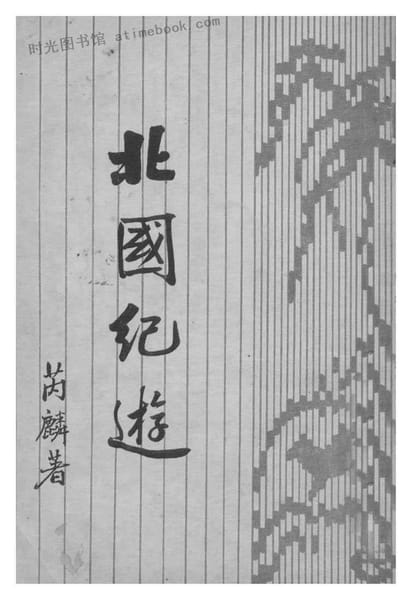 时光图书馆 atimebook.com
北國纪遊
芮麟著